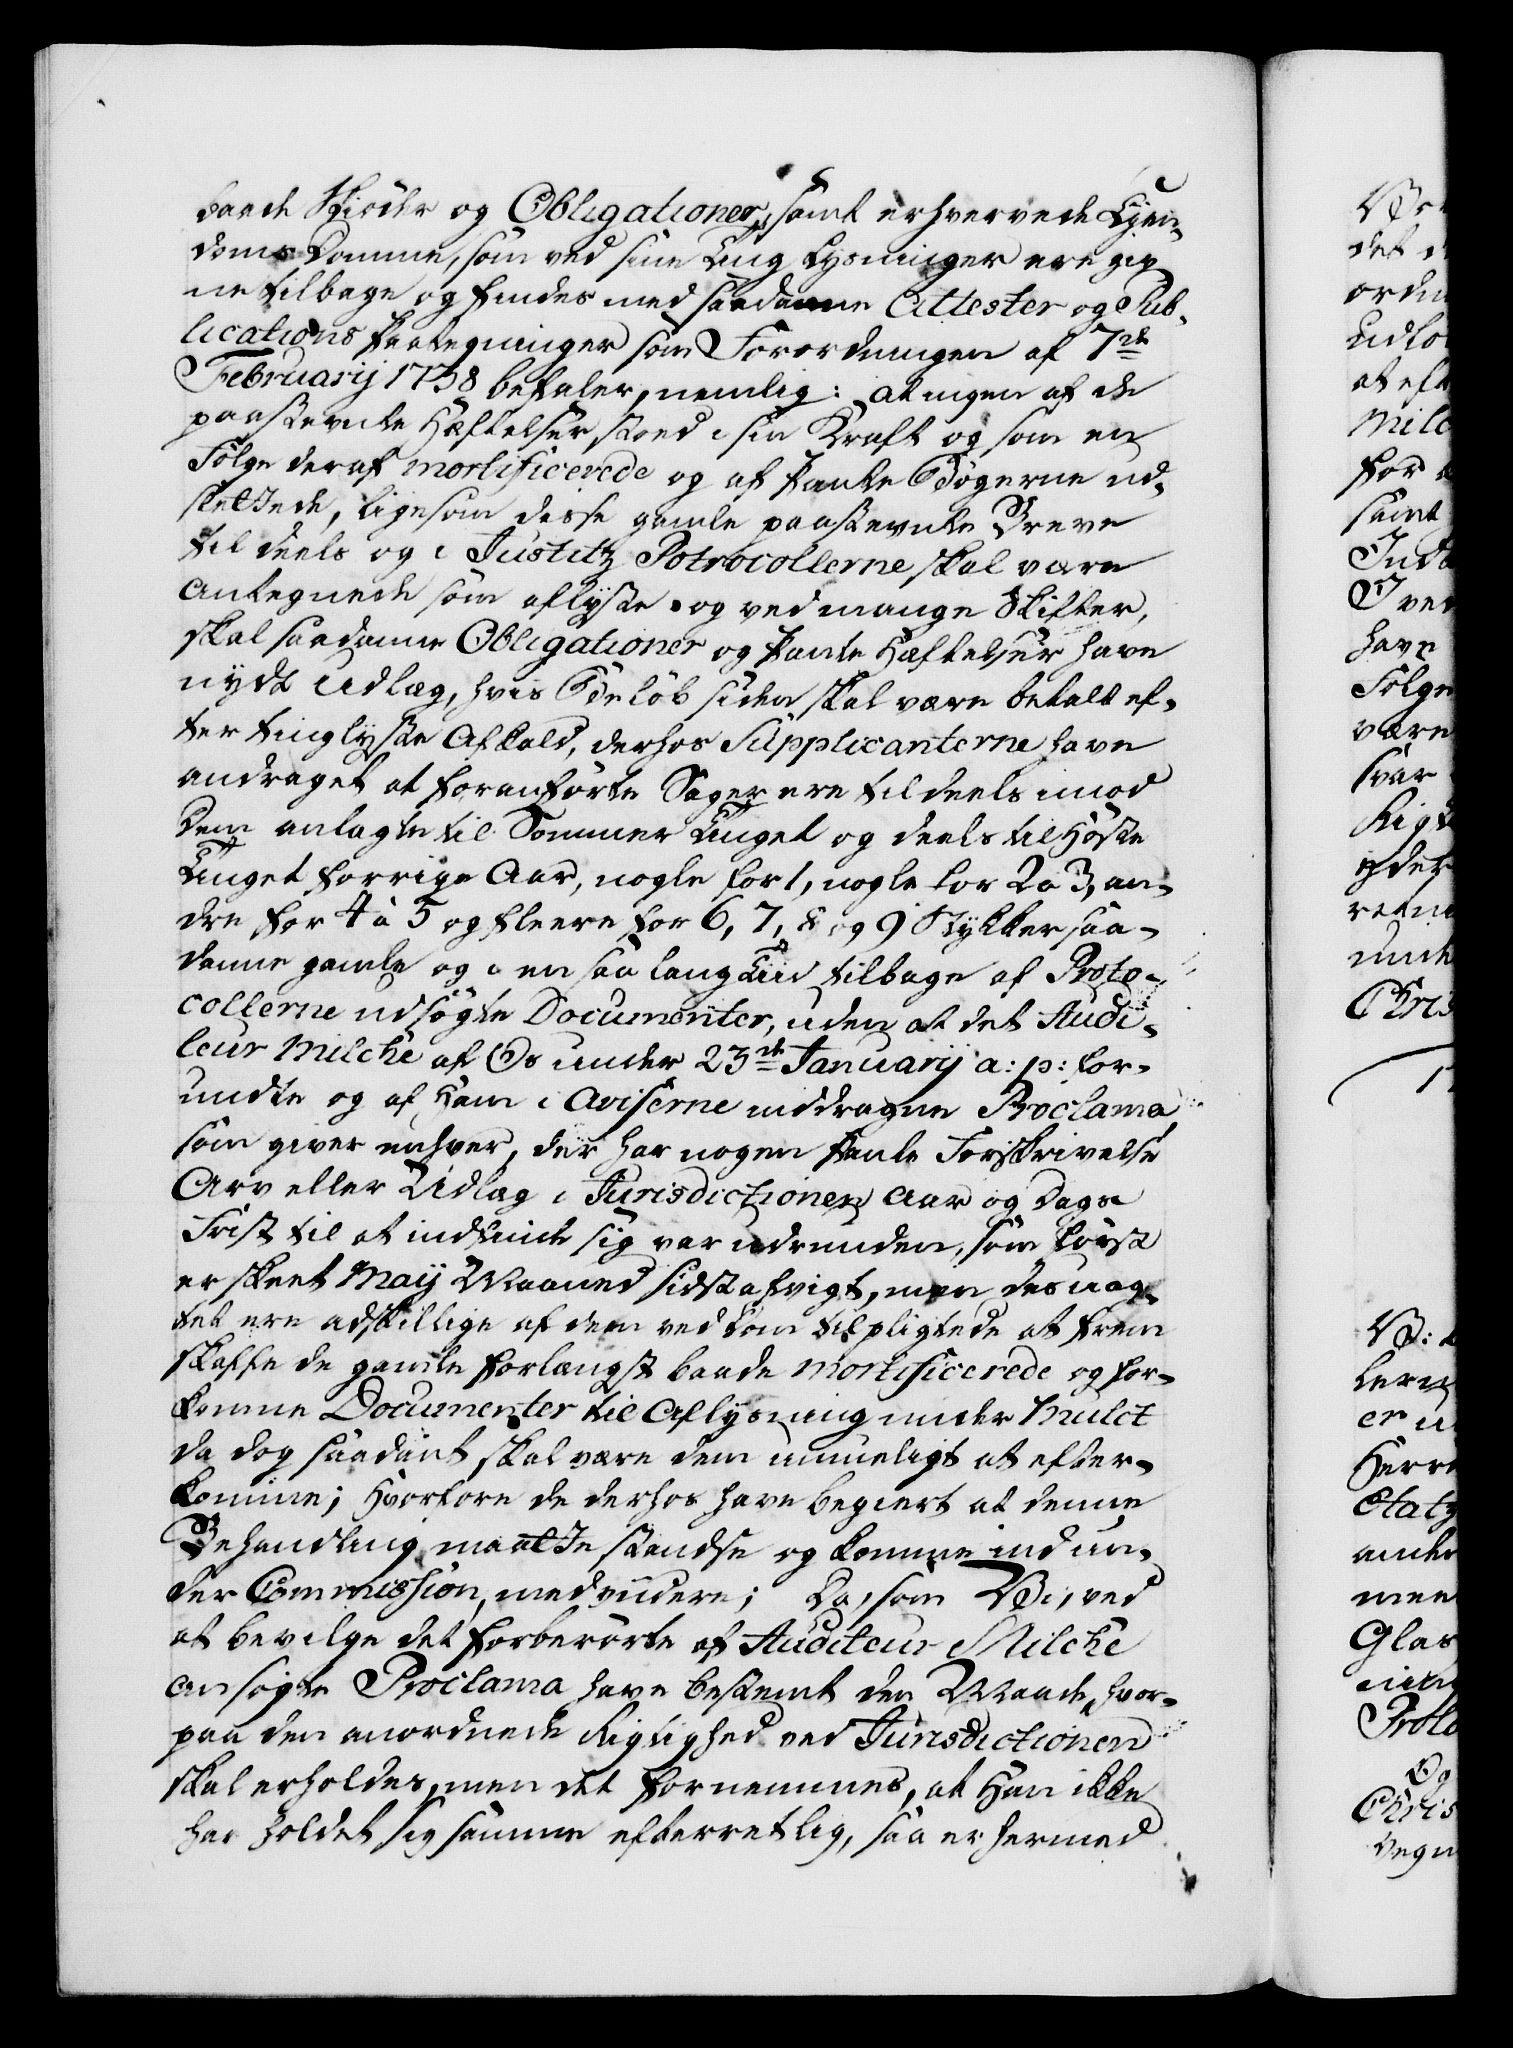 baade Skiøder og Obligationer, samt erhvervede Ejen-
doms Domme, som ved sine Ting Lysninger ere giv-
ne tilbage og findes med saadanne Attester og Pub-
lications Paategninger som Forordningen af 7de
Februarij 1738 befaler, nemlig: at ingen af de
paastevnte Hæftelser stoed i sin Kraft og som en
Følge deraf mortificerede og af Pante Bøgerne ud-
slettede, ligesom disse gamle paastevnte Breve
til deels og i Justitz Potrocollerne skal være
antegnede som aflyste og ved mange Skifter,
skal saadanne Obligationer og Pante Hæftelser have
nydt Udlæg, hvis Beløb siden skal være betalt ef-
ter tinglyste Afkald, derhos Supplicanterne have
andraget at foranførte Sager ere til deels imod
dem anlagte til Sommer Tinget og deels til Høste
Tinget forrige Aar, nogle for 1, nogle for 2 a 3, an-
dre for 4 à 5 og fleere for 6, 7, 8 og 9 Stykker saa-
danne gamle og a en saa lang Tiid tilbage af Proto-
collerne udsøgte Documenter, uden at det Audi-
teur Milche af Os under 23de Januarij a: p: for-
undte og af Ham i Aviserne inddragne Proclama,
som giver enhver, der har nogen Pante Forskrivelse
Arv eller Udlæg i Jurisdictionen Aar og Dags
Frist til at indfinde sig var udrunden, som først
er skeet Maij Maaned sidst afvigt, men des uag-
tet ere adskillige af dem ved Dom tilpligtede at frem
skaffe de gamle forlængst baade mortificerede og for-
komne Documenter til Aflysning under Mulct
da dog saadant skal være dem umueligt at efter-
komme; Hvorfore de derhos have begiert at denne
Behandling maatte standse og komme ind un-
der Commission, med viidere; Da, som Vi, ved
at bevilge det forberørte af Auditeur Milche
ansøgte Proclama have bestemt den Maade, hvor-
paa den anordnede Rigtighed ved Jurisdictionen
skal erholdes, men det fornemmes, at Han ikke
har holdet sig samme efterretlig, saa er hermed